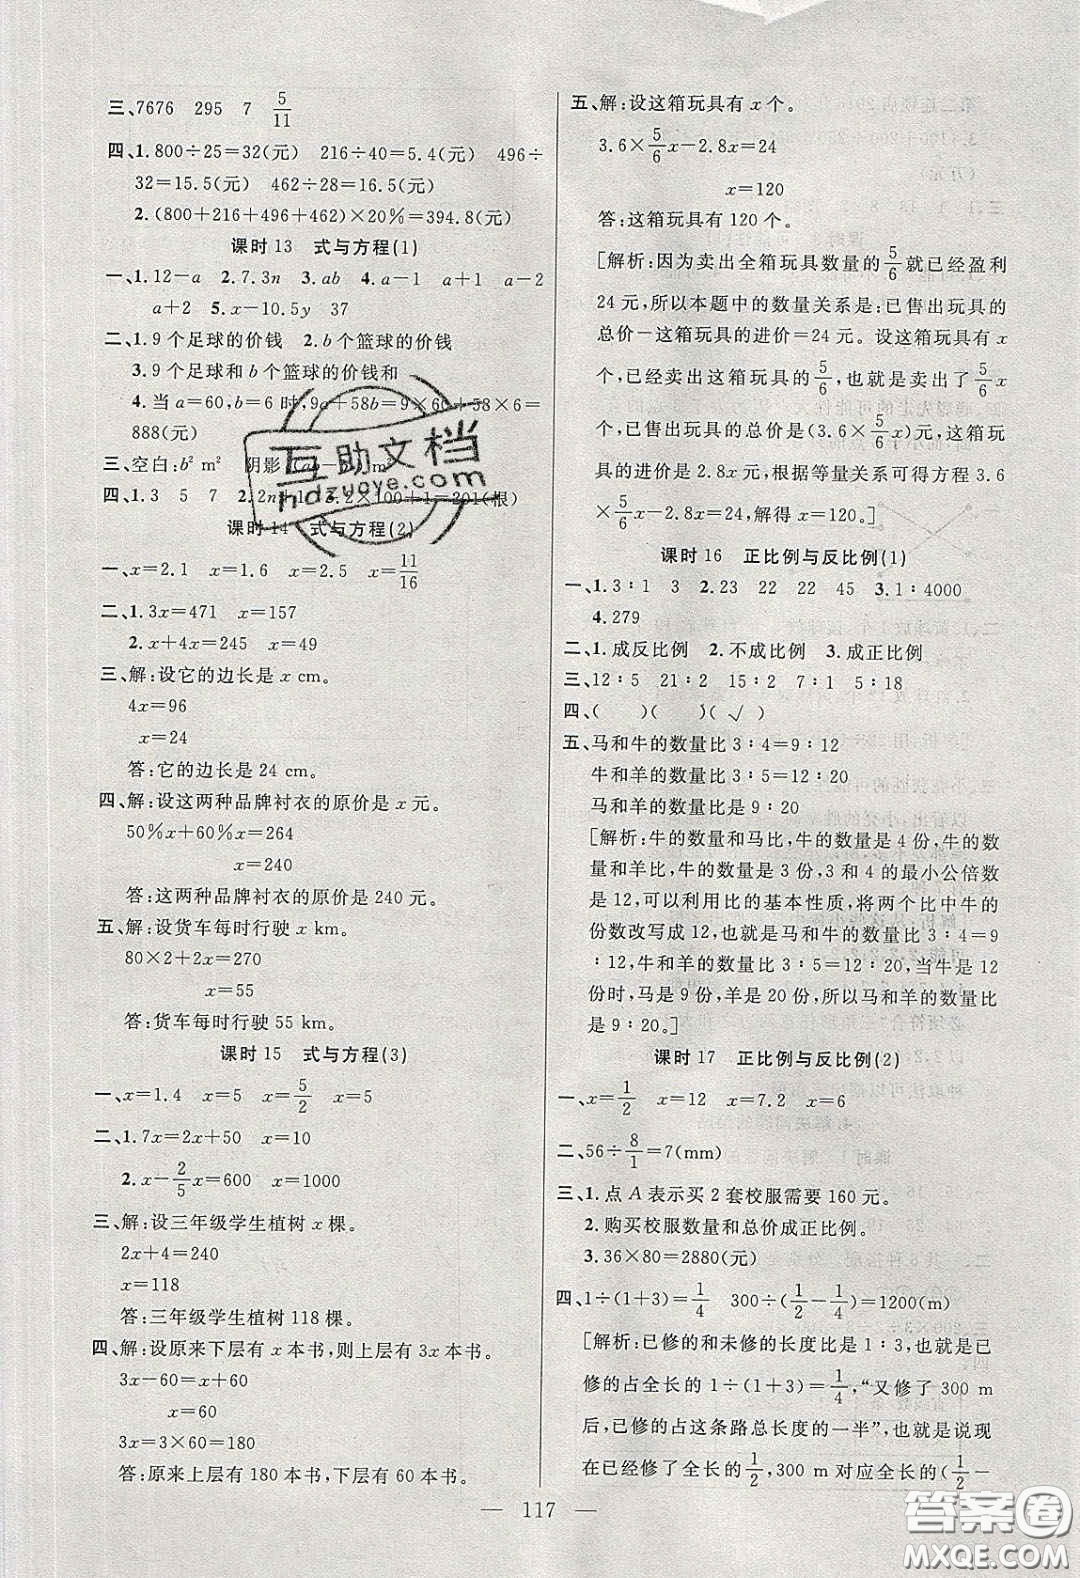 三、7676 295 7 5/11
四、1.800÷25=32(元) 216÷40=5.4(元) 496÷
32=15.5(元) 462÷28=16.5(元)
2.(800+216+496+462)×20%=394.8(元)
课时 13 式与方程(1)
一、1.12-a 2.7.3n 3.ab 4.a-1 a+1 a-2
a+2 5.x-10.5y 37
二、1.9 个足球的价钱 2.b 个篮球的价钱
3.9 个足球和 b 个篮球的价钱和
4.当 a=60,b=6 时,9a+58b=9×60+58×6=
888(元)
三、空白:b² m² 阴影
四、1.3 5 7 2.2n+1 3.2×100+1=201(根)
课时 14 式与方程(2)
一、x=2.1 x=1.6 x=11/16
二、1.3x=471 x=157
2.x+4x=245 x=49
三、解:设它的边长是 x cm。
4x=96
x=24
答:它的边长是 24 cm。
四、解:设这两种品牌衬衣的原价是 x 元。
50%x+60%x=264
x=240
答:这两种品牌衬衣的原价是 240 元。
五、解:设货车每时行驶 x km。
80×2+2x=270
x=55
答:货车每时行驶 55 km。
课时 15 式与方程(3)
一、x=1.4 x=5 x=5/2 x=5
二、1.7x=2x+50 x=10
2.x-2/5x=600 x=1000
三、解:设三年级学生植树 x 棵。
2x+4=240
x=118
答:三年级学生植树 118 棵。
四、解:设原来下层有 x 本书,则上层有 3x 本书。
3x-60=x+60
x=60
3x=3×60=180
答:原来上层有 180 本书,下层有 60 本书。
五、解:设这箱玩具有 x 个。
3.6×5/6x-2.8x=24
x=120
答:这箱玩具有 120 个。
[解析:因为卖出全箱玩具数量的5/6就已经盈利
24 元,所以本题中的数量关系是:已售出玩具的
总价-这箱玩具的进价=24 元。设这箱玩具有 x
个,已经卖出这箱玩具的5/6,也就是卖出了5/6x
个,已售出玩具的总价是(3.6×5/6x)元,这箱玩
具的进价是 2.8x 元,根据等量关系可得方程 3.6
×5/6x-2.8x=24,解得 x=120。]
课时 16 正比例与反比例(1)
一、1.3∶1 3 2.23 22 22 45 3.1∶4000
4.279
二、1.成反比例 2.不成比例 3.成正比例
三、12∶5 21∶2 15∶2 7∶1 5∶18
四、( )( )(√)
五、马和牛的数量比 3∶4=9∶12
牛和羊的数量比 3∶5=12∶20
马和羊的数量比是 9∶20
[解析:牛的数量和马比,牛的数量是 4 份,牛的数
量和羊比,牛的数量是 3 份,3 和 4 的最小公倍数
是 12,可以利用比的基本性质,将两个比中牛的
份数改写成 12,也就是马和牛的数量比 3∶4=9
∶12,牛和羊的数量比 3∶5=12∶20,当牛是 12
份时,马是 9 份,羊是 20 份,所以马和羊的数量比
是 9∶20。]
课时 17 正比例与反比例(2)
一、x=1/2 x=12 x=7.2 x=6
二、56÷8/1=7(mm)
三、1.点 A 表示买 2 套校服需要 160 元。
2.购买校服数量和总价成正比例。
3.36×80=2880(元)
四、1÷(1+3)=1/4 300÷(1/2-1/4)=1200(m)
[解析:已修的和未修的长度比是 1∶3,已
修的占全长的 1÷(1+3)=1/4,“又修了 300 m
后,已修的占这条路总长度的一半”,也就是说现
在已经修了全长的1/2,300 m 对应全长的(1/2-
— 117 —
互助文档
hdzuoye.com
答案圈
MXQE.COM